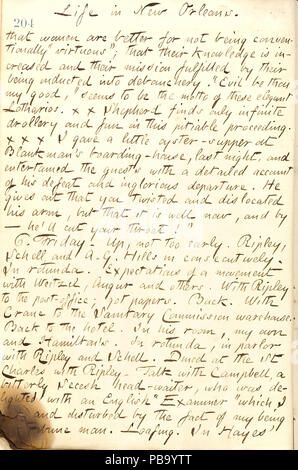 204
Life in New Orleans.
that women are better for not being conven-
tionally "virtuous", that their knowledge is in-
creased and their mission fulfilled by their
being inducted into debauchery. "Evil be thou
my good," seems to be the motto of these elegant
Lotharios. x x Shepherd finds only infinite
drollery and fun in this pitiable proceeding.
x x x I gave a little oyster-supper at
Blankman's boarding-house, last night, and
entertained the guests with a detailed account
of his defeat and inglorious departure. He
gives out that you twisted and dislocated
his arm, but that it is well now, and by
— he'll cut your throat!"
6. Friday. Up, not too early. Ripley,
Schell and A.G. Hills in consecutively.
In rotunda. Expectations of a movement
with Weitzel, Augur and others. With Ripley
to the post-office; got papers. Back. With
Crane to the Sanitary Commission warehouse.
Back to the hotel. In his room, my own
and Hamilton's. In rotunda, in parlor
with Ripley and Schell. Dined at the St
Charles with Ripley. Talk with Campbell, a
bitterly Secesh head-waiter, who was de-
lighted with an English "Examiner" which I
and disturbed by the fact of my being
man. Loafing. In Hayes'
alamy
Image ID: PB99YT
www.alamy.com